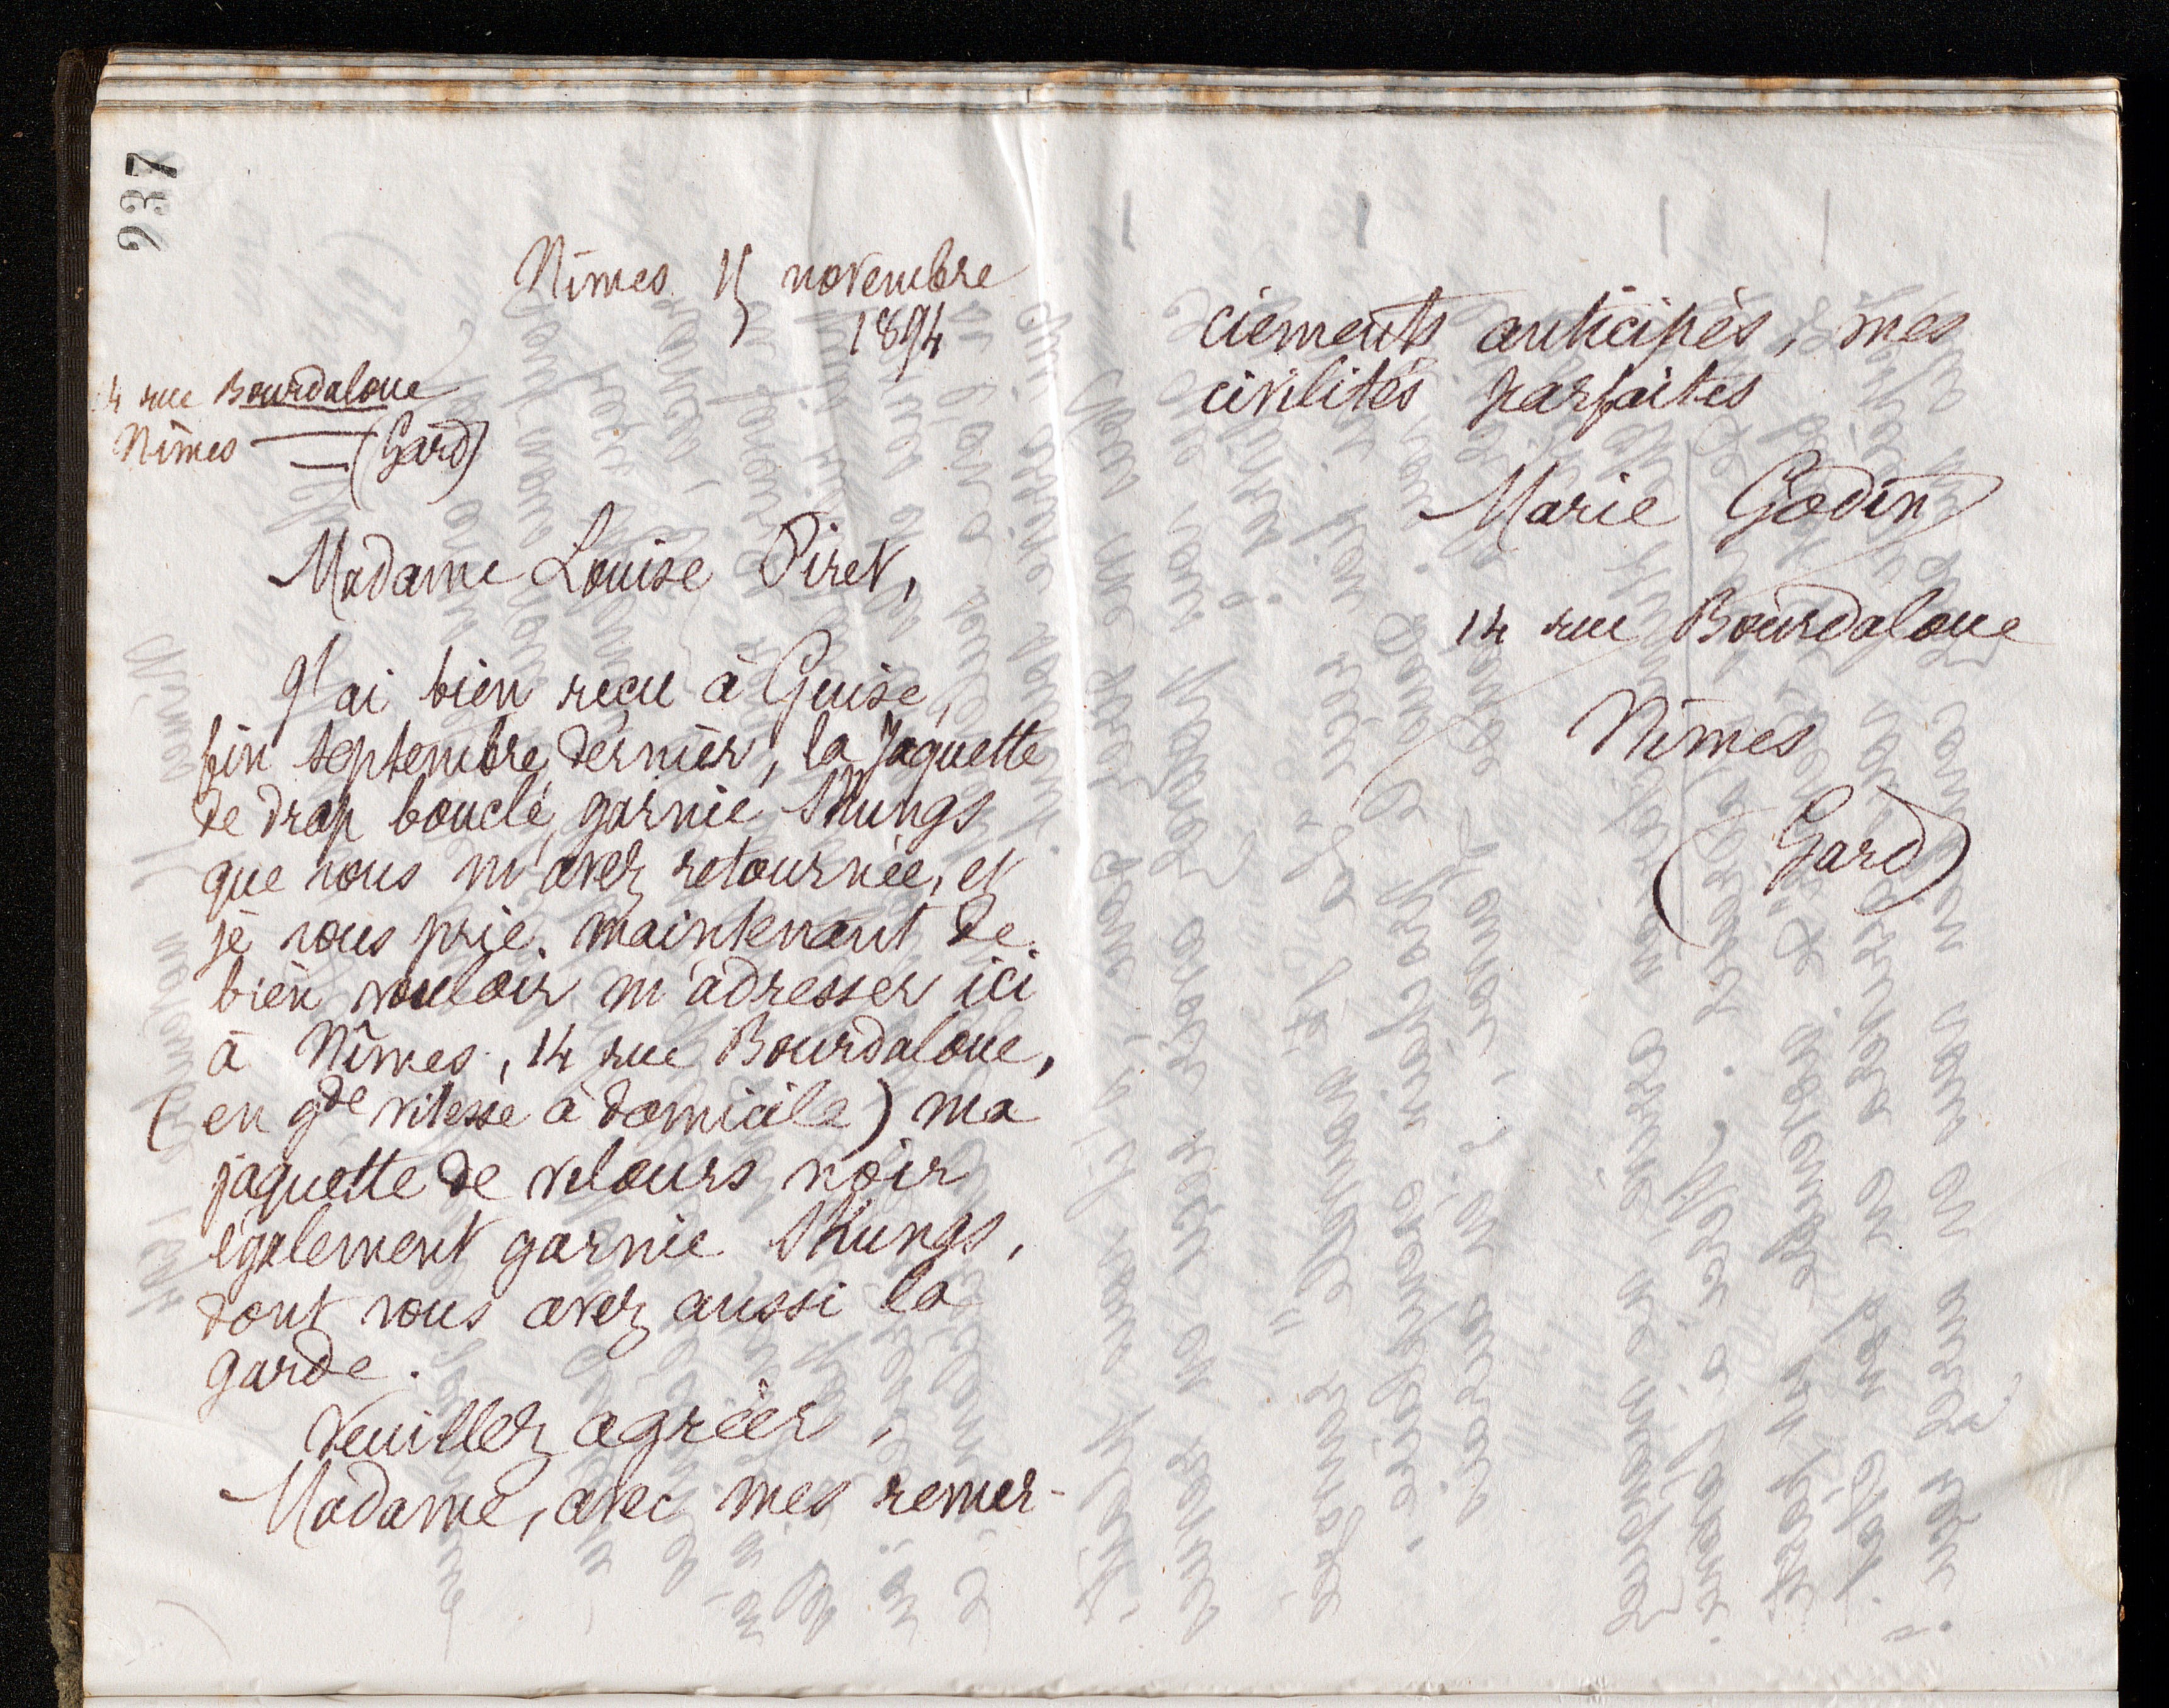 937
Nîmes 15 novembre
1894
14 rue Bourdaloue
Nîmes — (Gard)
Madame Louise Piret,
J'ai bien reçu à Guise,
fin septembre dernier, la Jaquette
de drap bouclé, garnie Skungs
que vous m'avez retournée, et
je vous prie, maintenant de
bien vouloir m'adresser ici
à Nîmes, 14 rue Bourdaloue,
(en gde vitesse à domicile) ma
jaquette de velours noir
également garnie Skungs,
dont vous avez aussi la
garde.
Veuillez agréer,
Madame, avec mes remer-
ciements anticipés, mes
civilités parfaites
Marie Godin
14 rue Bourdaloue
Nîmes
(Gard)